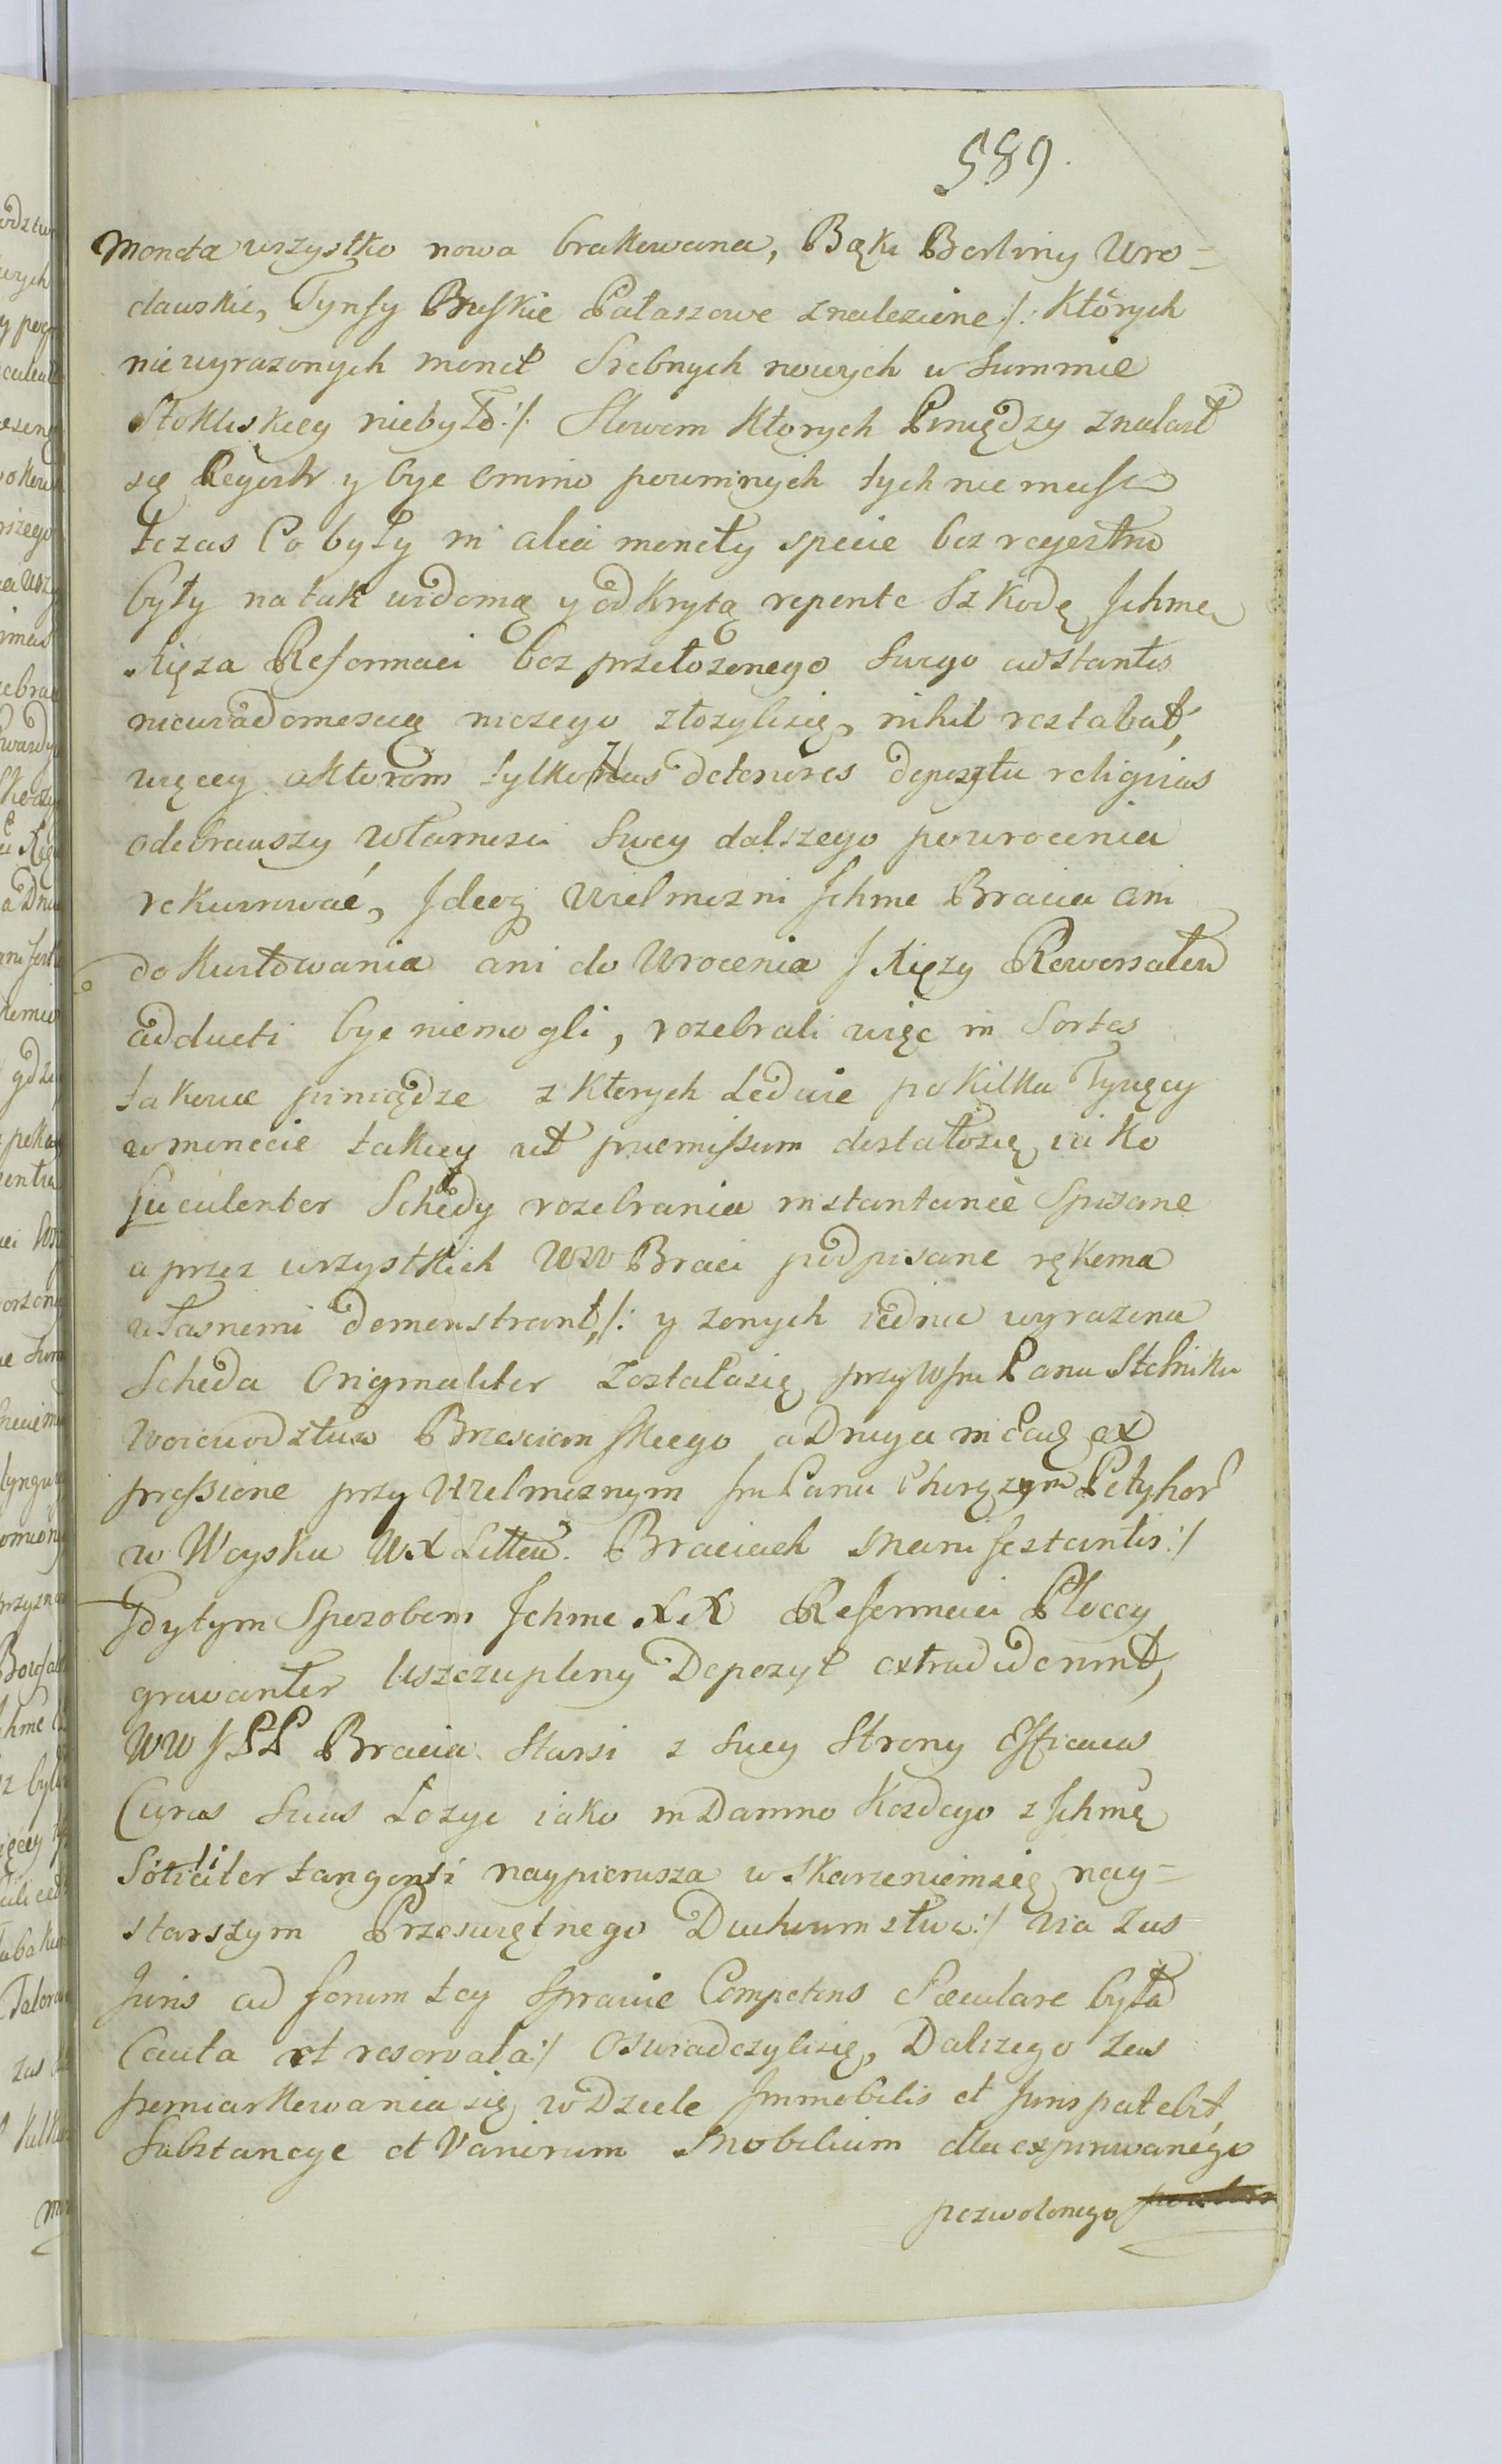 589.
Moneta wszystko nowa brakowana, Bąki Berliny Wro=
cławskie, Tynfy Pruskie Pałaszowe znalezione /: Których
nie wyrazonych monet Srebnych nowych w Summie
Stokliskiey niebyło :/ Słowem Ktorych Pieniędzy znalasł
się Regestr y byc omnino powinnych tych nie masz
tczas Co były in alia monety specie bez regestru
były na tak widomą y odkrytą repente Szkodę Ichmę
Xięza Reformaci bez przełozonego Swego adstantis
niewiadomoscią niczego złozylisię, nihil restabat,
więcey aktorom tylko has detentores depozytu reliquias
odebrawszy własnosci Swey dalszego powrocenia
rekurować, Ideoq Wielmozni Ichme Bracia ani
do Kwitowania ani do Wrocenia J Xięzy Rewersałów
adducti byc niemogli, rozebrali więc in Sortes
takowe piniądze z Ktorych Ledwie po Kilku Tysięcy
w monecie takiey ut praemissum dostałosię iako
Luculenter Schedy rozebrania instantanie Spisane
a przez wszystkich WW Braci podpisane rękoma
własnemi demonstrant, /: y z onych iedna wyrazona
Scheda Originaliter Zostałasię przy WJm Panu Stolniku
Woiewodztwa Brzescianskiego a Druga in Eaq ex
pressione przy Wielmoznym Jm Panu Chorązym Petyhor
w Woysku WX Littew. Braciach Manifestantis :/
Gdy tym Sposobem Ichme XX Reformaci Płoccy
gravanter Uszczuplony Depozyt extradiderunt,
WW JPP Bracia Starsi z Swey Strony Efficaces
Curas Swas Łozyc iako in Damno Kozdego z Ichmę
Soliciter tangenti naypierwsza w skarzeniemsię nay=
starszym Przeswiętnego Duchowienstwa :/ via zas
Juris ad forum tey Sprawie Competens Sæculare była
Cauta et reservata :/ Oswiadczylisię, Dalszego zas
pomiarkowania się w Dziele Immobilis et Juris patebit,
Substancye et Variorum Mobilium dla expirowanego
pozwolonego